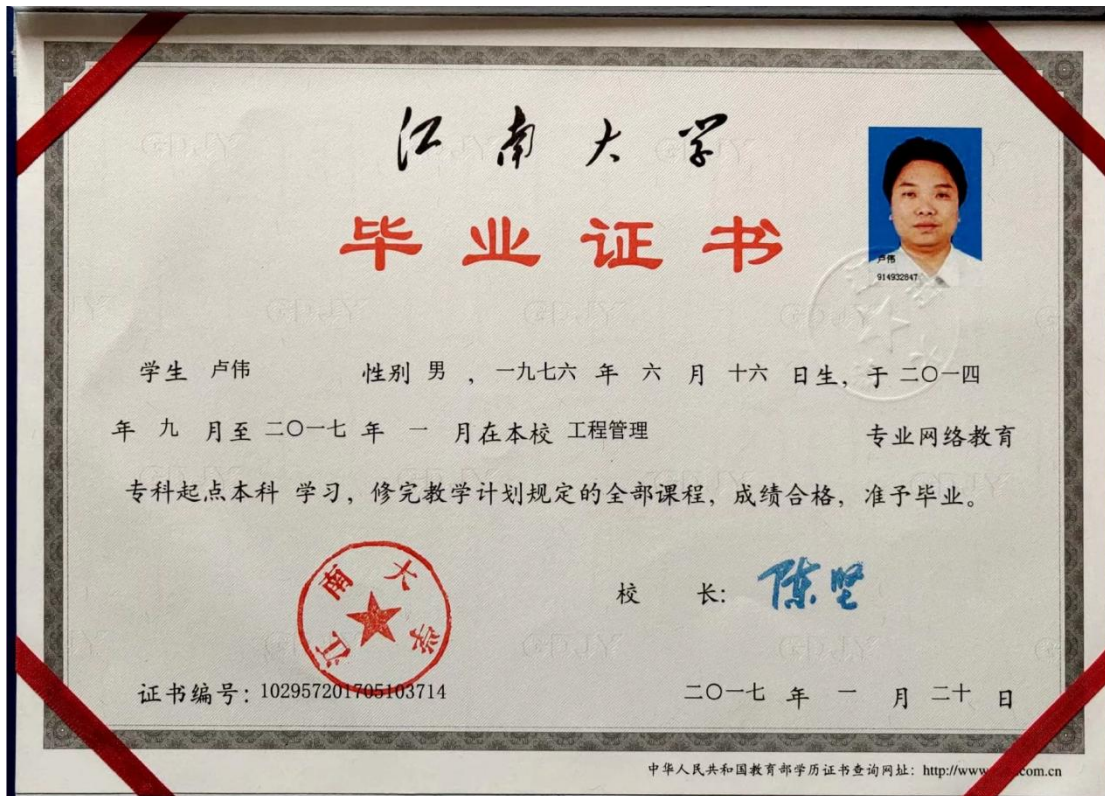 江南大学
毕业证书
卢伟
914932847
学生 卢伟 性别 男 ，一九七六 年 六 月 十六 日生，于 二〇一四
年 九 月至 二〇一七 年 一 月在本校 工程管理 专业网络教育
专科起点本科 学习，修完教学计划规定的全部课程，成绩合格，准予毕业。
江南大学
校 长：陈坚
证书编号：102957201705103714
二〇一七 年 一 月 二十 日
中华人民共和国教育部学历证书查询网址：http://www. .com.cn